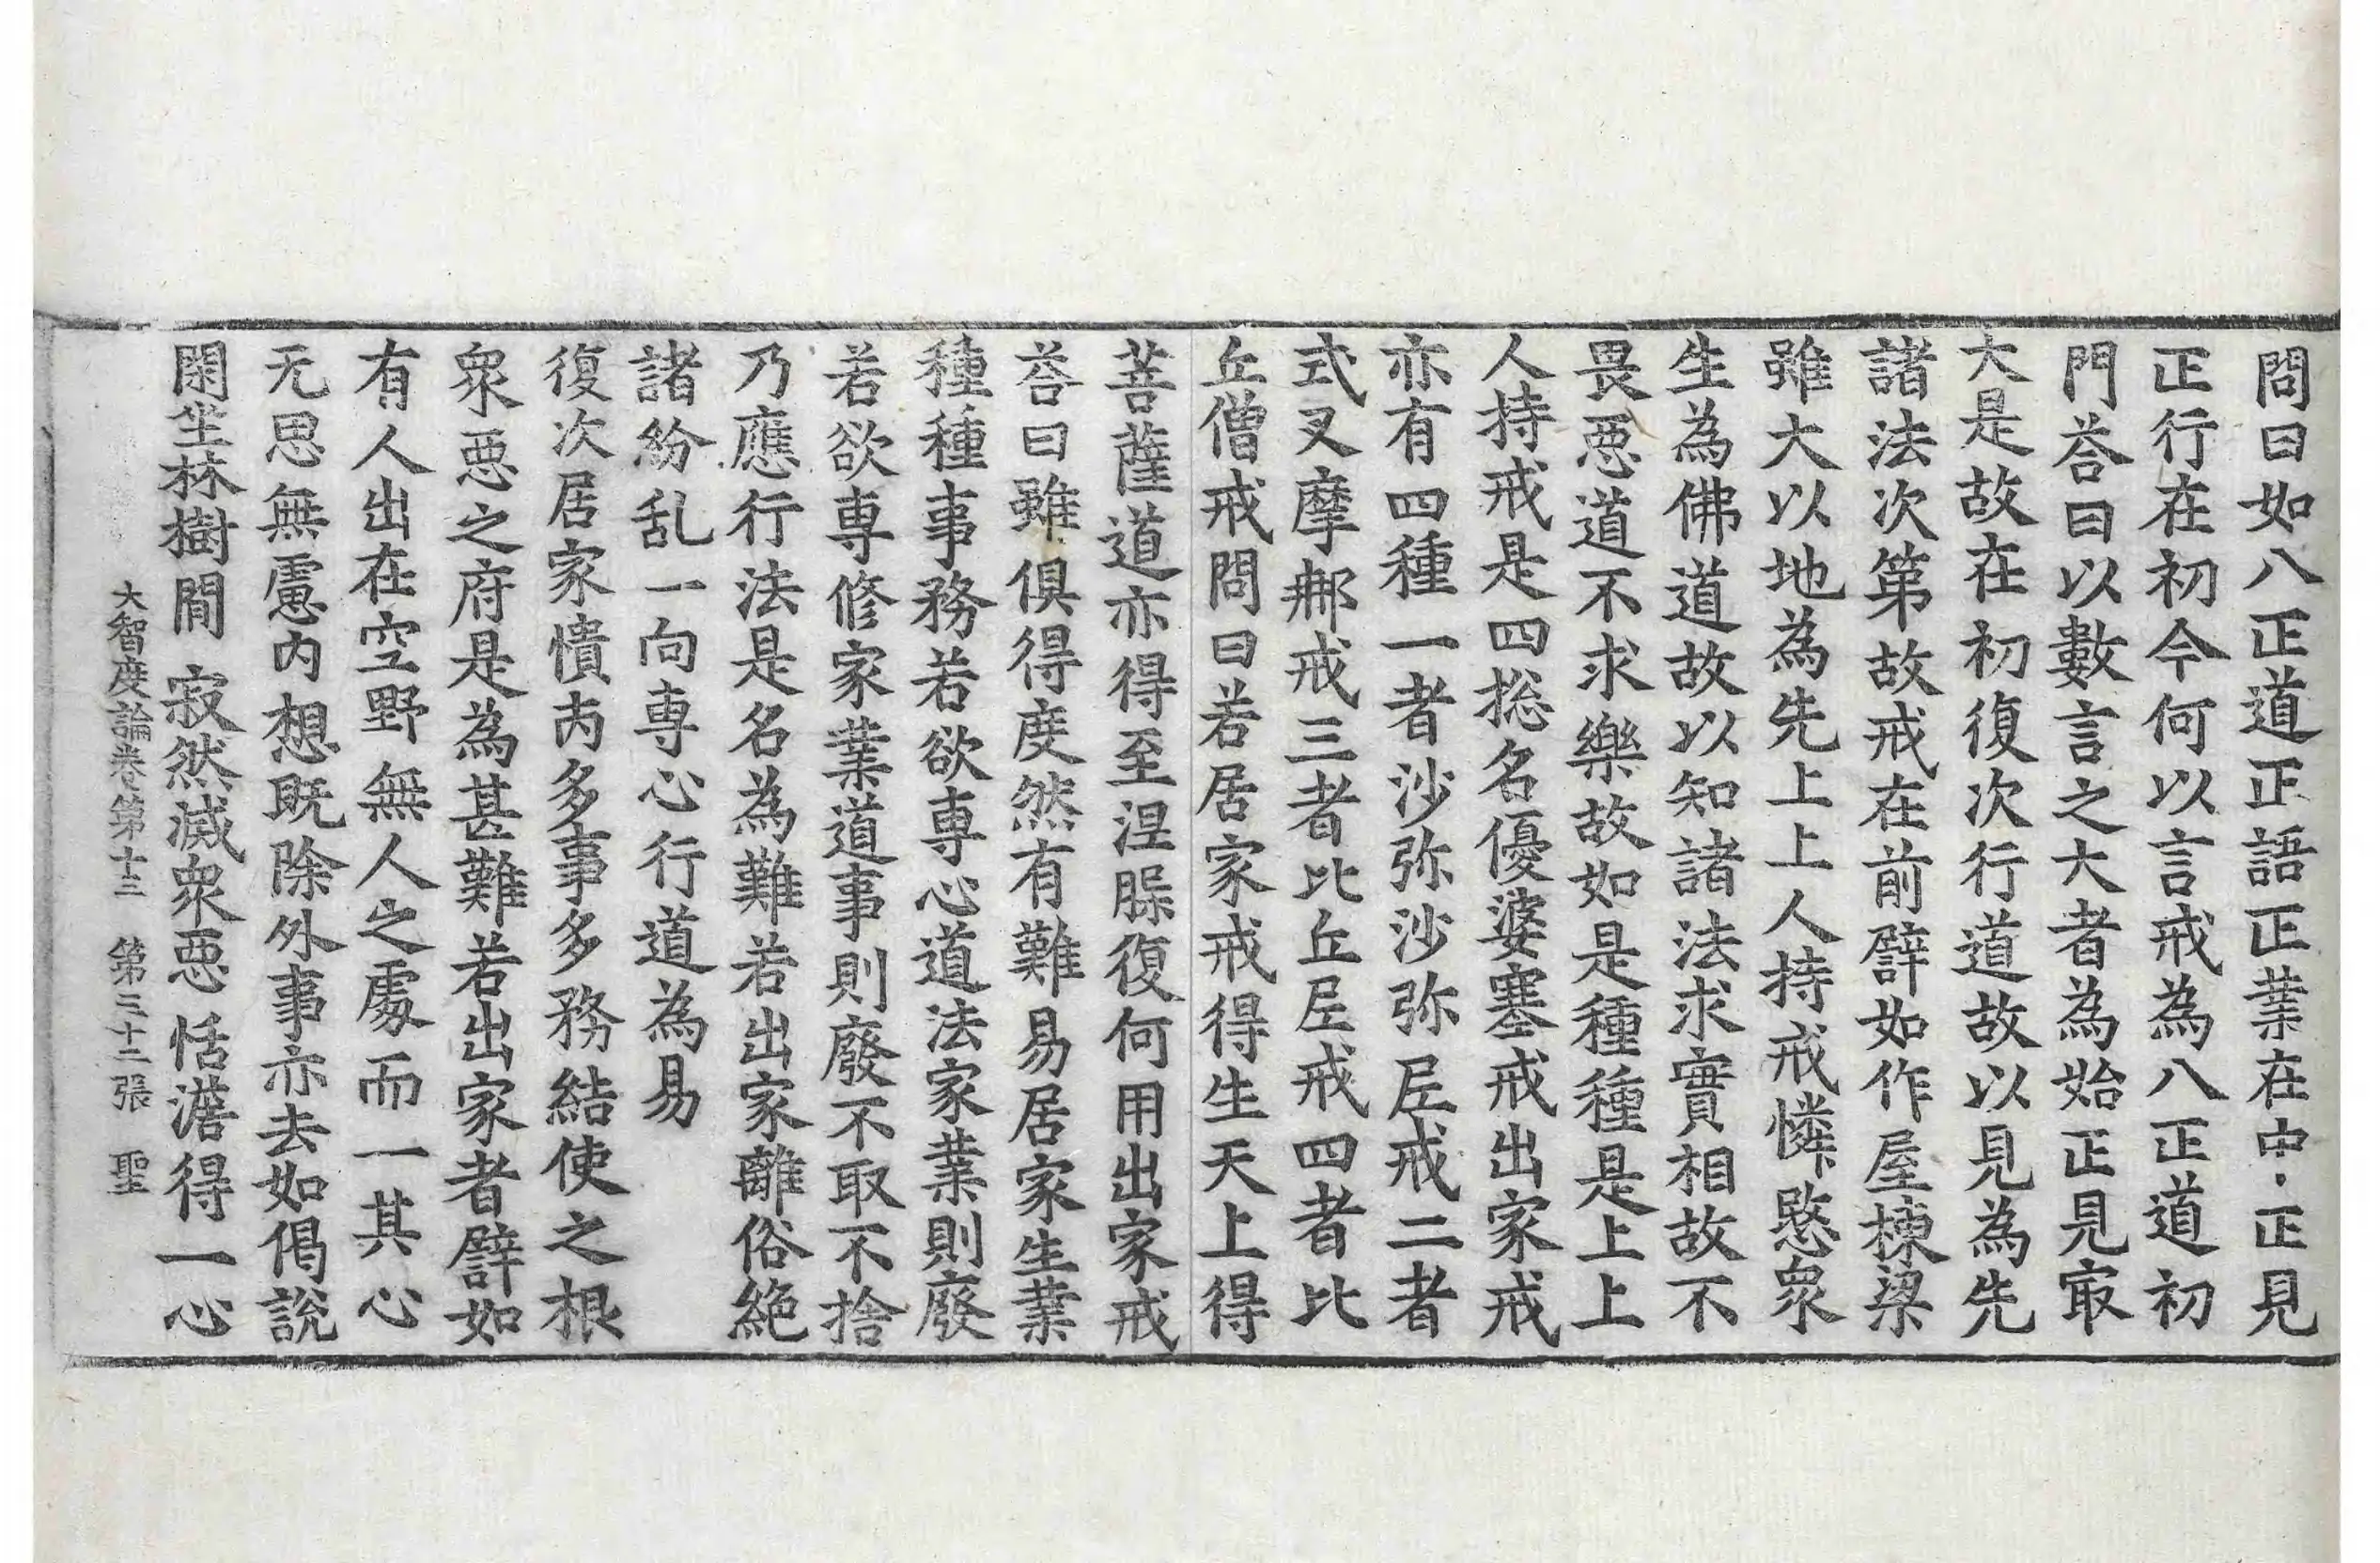 問曰如八正道正語正業在中正見
正行在初今何以言戒為八正道初
門荅曰以數言之大者為始正見㝡
大是故在初復次行道故以見為先
諸法次第故戒在前譬如作屋棟梁
雖大以地為先上上人持戒憐愍衆
生為佛道故以知諸法求實相故不
畏惡道不求樂故如是種種是上上
人持戒是四捴名優婆塞戒出家戒
亦有四種一者沙弥沙弥尼戒二者
式叉摩那戒三者比丘尼戒四者比
丘僧戒問曰若居家戒得生天上得
菩薩道亦得至涅槃復何用出家戒
荅曰雖俱得度然有難易居家生業
種種事務若欲専心道法家業則廢
若欲専修家業道事則廢不取不捨
乃應行法是名為難若出家離俗絶
諸紛乱一向専心行道為易
復次居家憒丙多事多務結使之根
衆惡之府是為甚難若出家者譬如
有人出在空野無人之處而一其心
无思無慮内想既除外事亦去如偈說
閑坐林樹間 寂然滅衆惡 恬澹得一心
大智度論卷第十三 第三十二張 聖